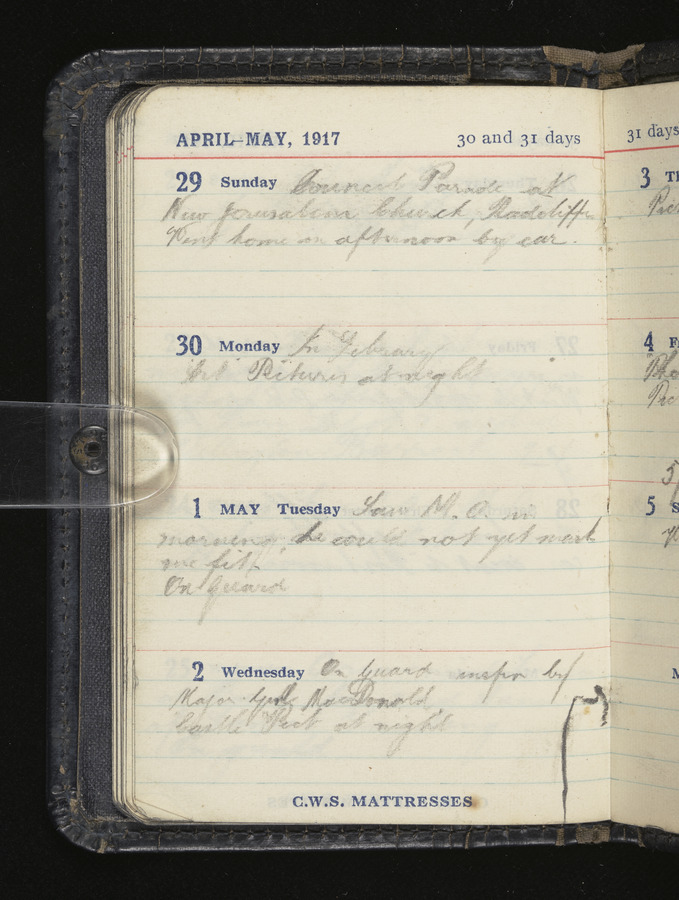 APRIL–MAY, 1917 30 and 31 days
29 Sunday Council Parade at
New Jerusalem Church, Radcliffe
Went home in afternoon by car.
30 Monday In Library
Pictures at night
1 MAY Tuesday Saw M.O. in
morning, he could not yet mark
me fit.
On guard
2 Wednesday On guard inspn by
Major Genl MacDonald
Castle Pict at night
C.W.S. MATTRESSES
31 days
3 Th
Pic
4 F
Pic
5 S